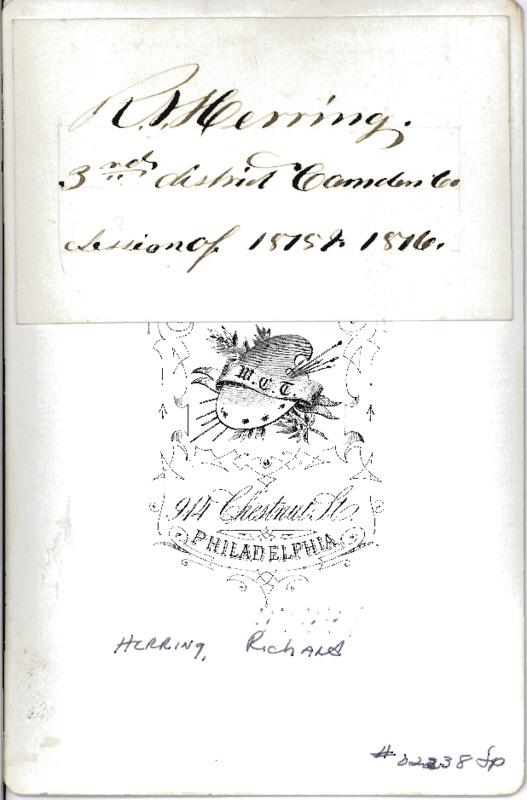 R. N. Herring.
3rd district Camden Co
Session of 1875 & 1876.
W. C. T.
914 Chestnut St
PHILADELPHIA
HERRING, RICHARD
#02238 Sp